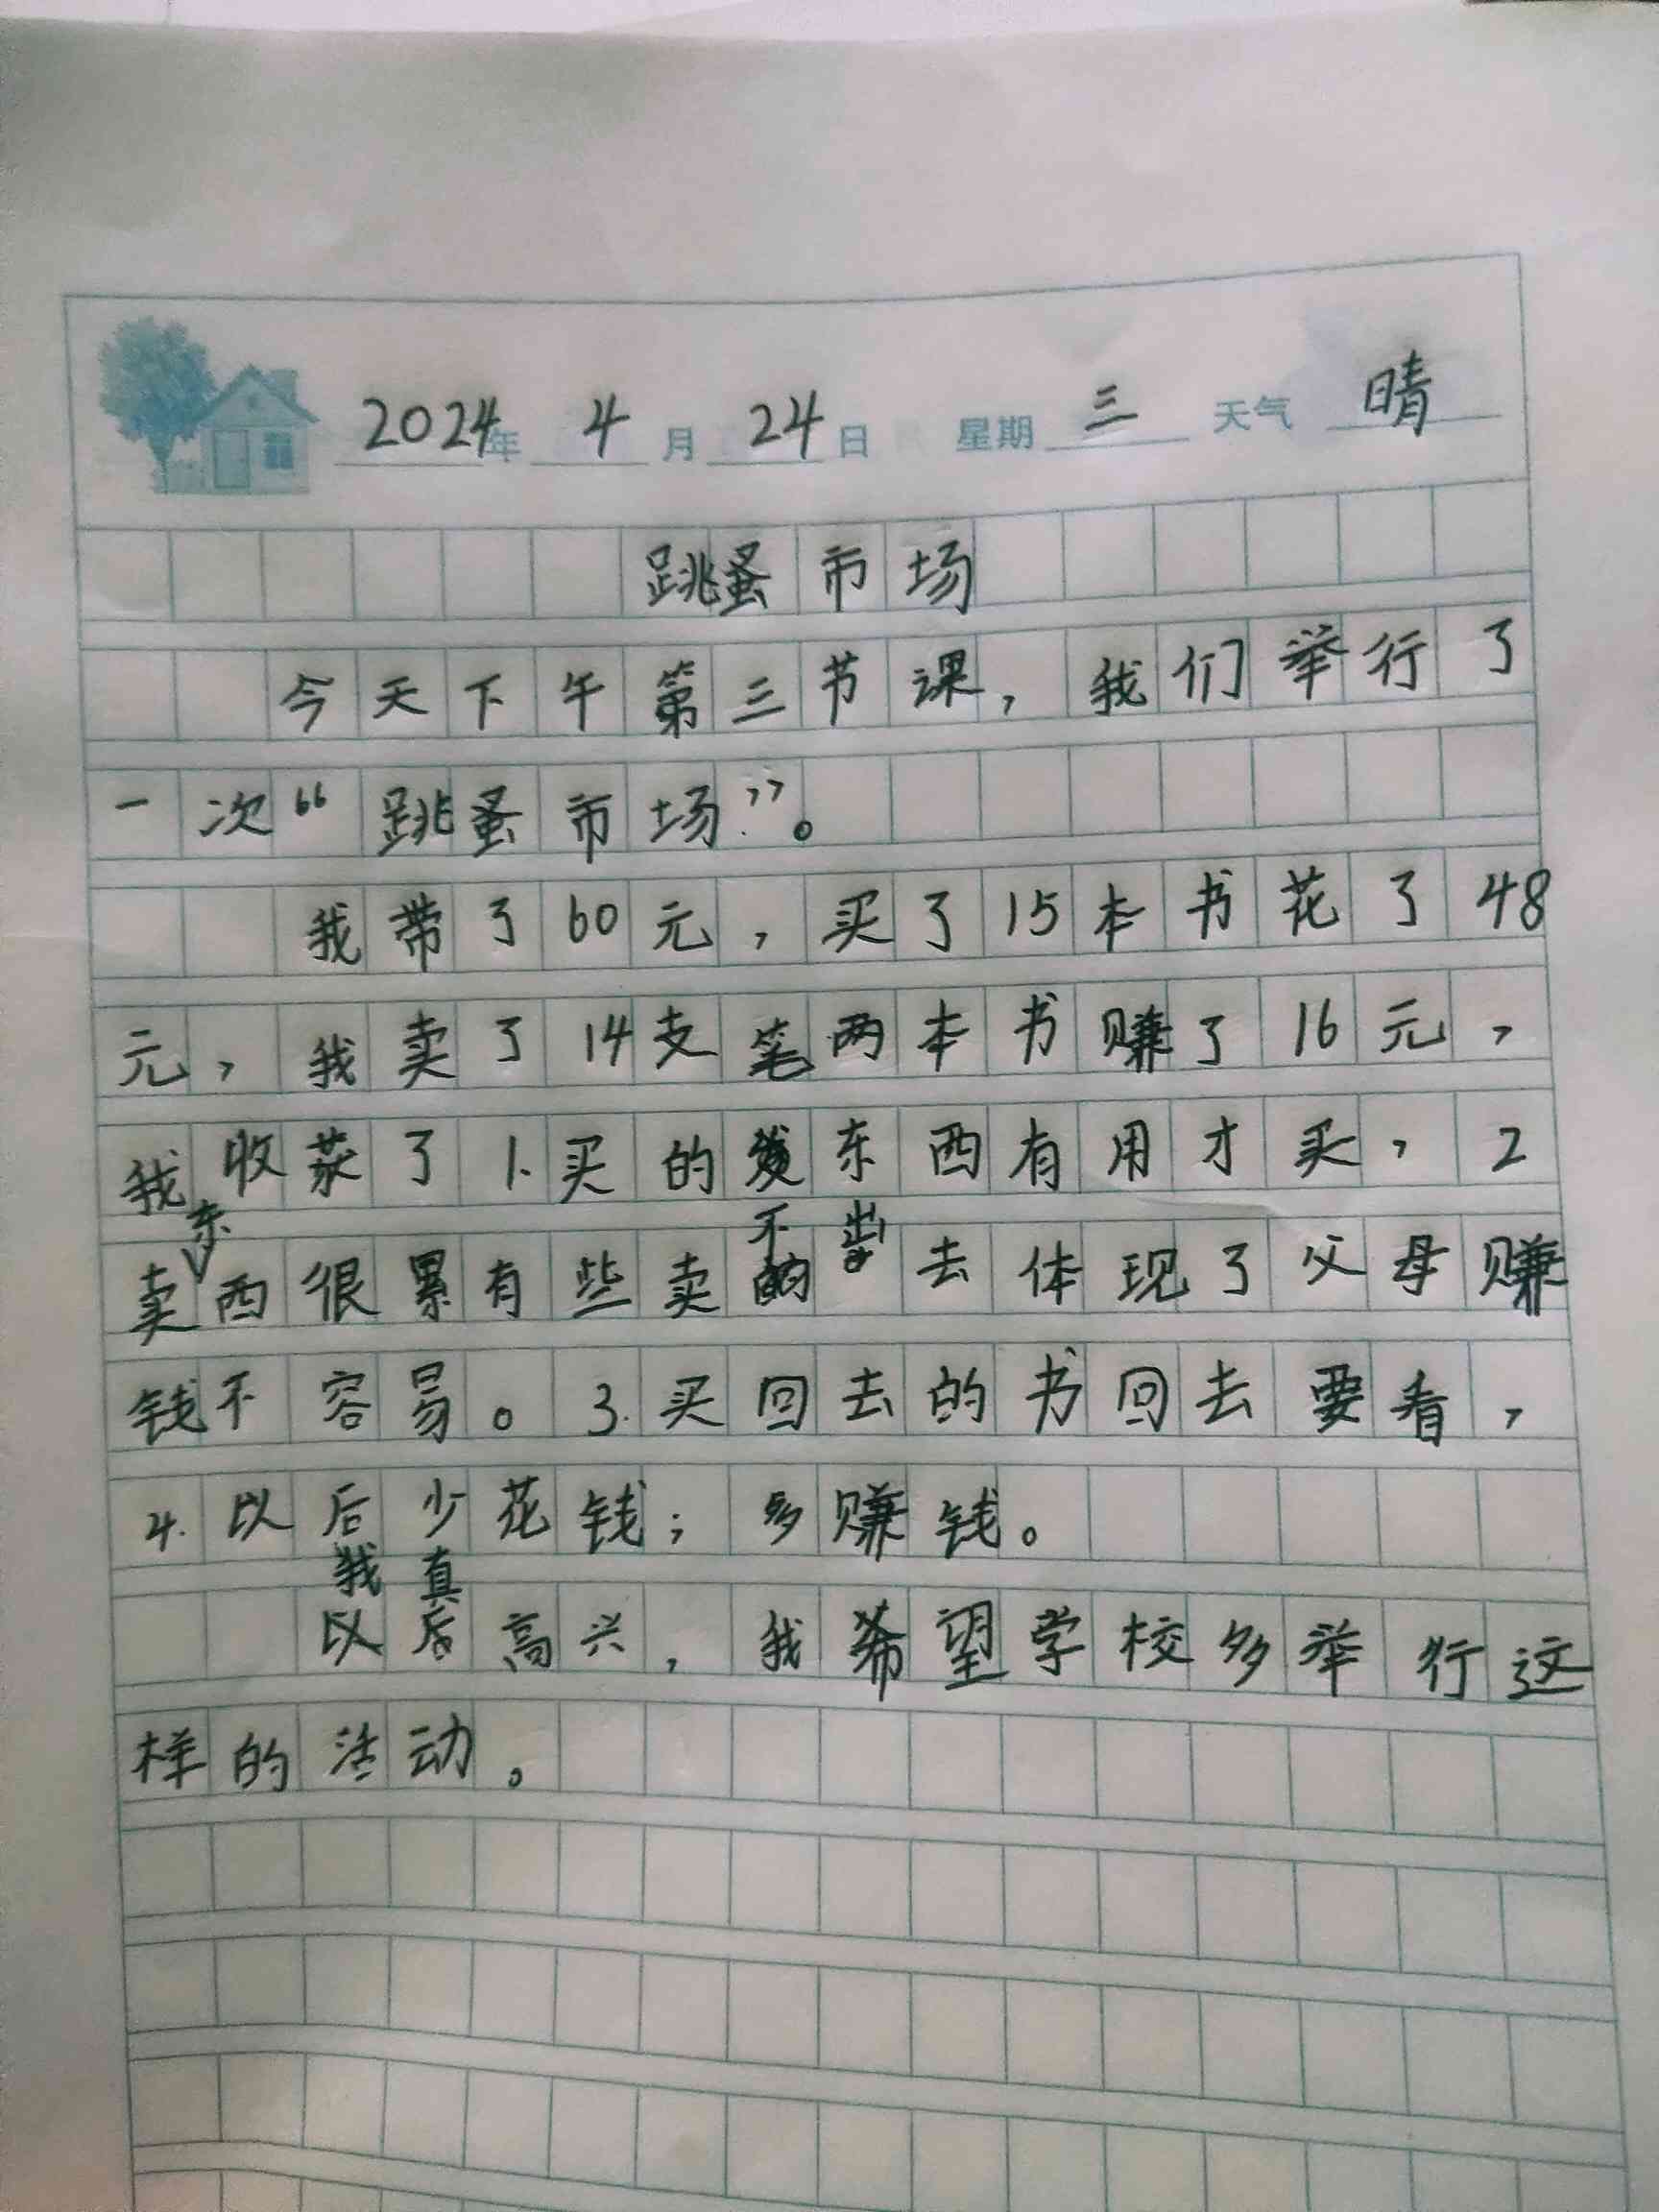 2024年 4月 24日 星期三 天气 晴
跳蚤市场
今天下午第三节课，我们举行了
一次“跳蚤市场”。
我带了60元，买了15本书花了48
元，我卖了14支笔两本书赚了16元，
我收获了1.买的东西有用才买，2
卖东西很累有些卖不出去体现了父母赚
钱不容易。3.买回去的书回去要看，
4.以后少花钱；多赚钱。
我真高兴，我希望学校多举行这
样的活动。